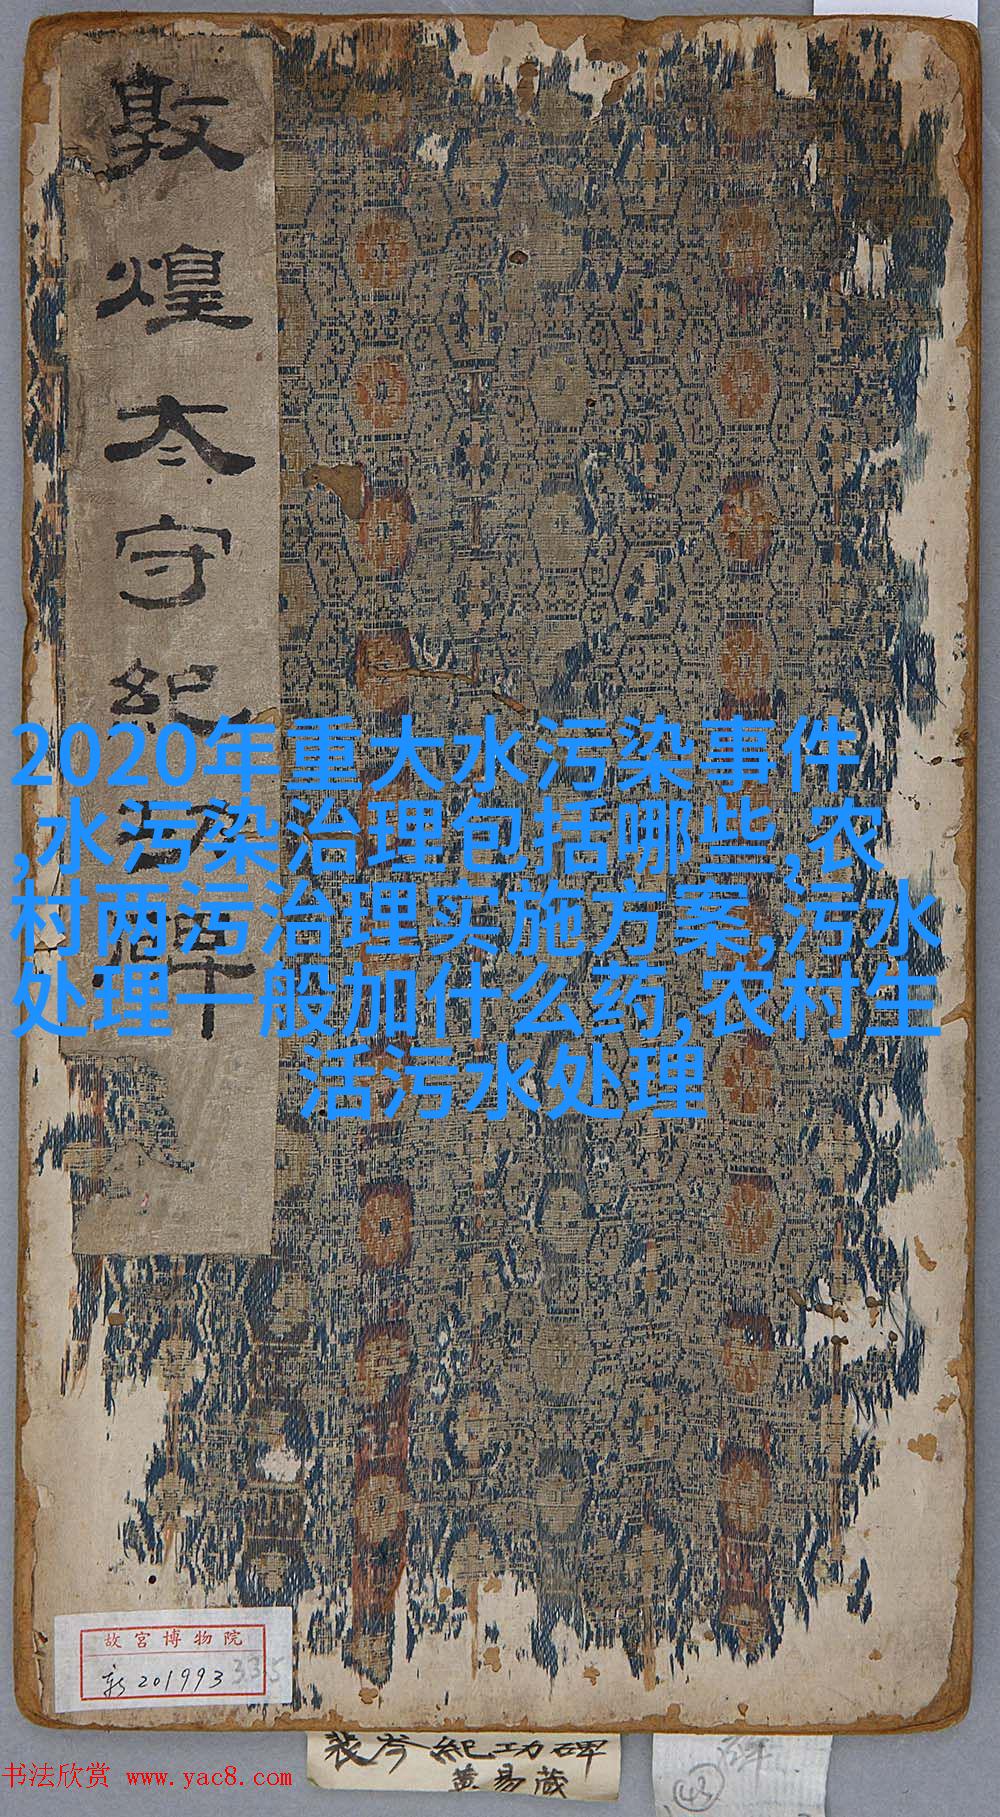 敦煌太守紀功碑
2020年重大水污染事件
,水污染治理包括哪些,农
村两污治理实施方案,污水
处理一般加什么药,农村生
活污水处理
故宫博物院
新201993
335
裴岑紀功碑
黄易藏
43
书法欣赏 www.yac8.com